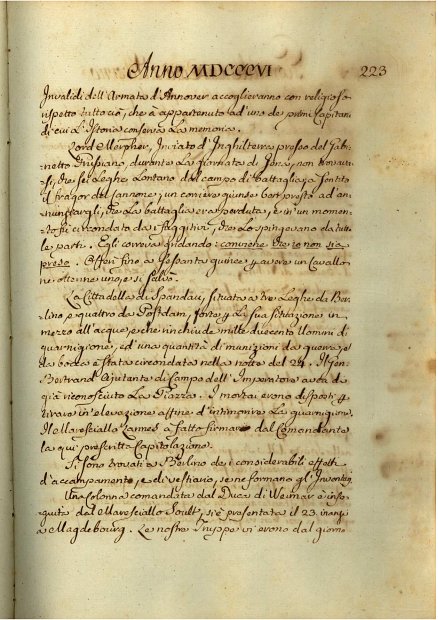 Anno MDCCCVI
223
Invalidi dell'Armata d'Annover accoglieranno con religioso
rispetto tuttociò, che à appartenuto ad uno de primi Capitani
di cui l'Istoria conservi la memoria.
Lord Morpher, Inviato d'Inghilterra presso del Gabi-
netto Prussiano, durante la giornata di Jena, non trovava-
si, che sei Leghe lontano dal campo di battaglia; à sentito
il fragor del cannone, un corriere giunse ben presto ad an-
nunciargli, che la battaglia era perduta, e in un momen-
to fu circondato da i fuggitivi, che lo spingevano da tutte
le parti. Egli correva gridando: conviene che io non sia
preso. Offerì fino a sessanta guinee per avere un Cavallo
ne ottenne uno, e si salvò.
La Cittadella di Spandau, situata a tre Leghe di Ber-
lino, e quattro da Postdam, forte per la sua situazione in
mezzo all'acque, e che rinchiude mille duecento Uomini di
guarnigione, ed una quantità di munizioni da guerra, e
da bocca è stata circondata nella notte del 24. Il Gen.
Bertrand Ajutante di Campo dell'Imperatore aveva di
già riconosciuto la Piazza. I mortai erano disposti per
tirare in elevazione affine d'intimorire la guarnigione.
Il Maresciallo Lannes à fatto firmare dal Comandante
la qui prescritta Capitolazione.
Si sono trovati a Berlino de i considerabili effetti
d'accampamento, e di vestiario, se ne formano gl'Inventarj.
Una Colonna comandata dal Duca di Weimar è inse-
guita dal Maresciallo Soult, si è presentata il 23. innanzi
a Magdebourg. Le nostre Truppe vi erano dal giorno